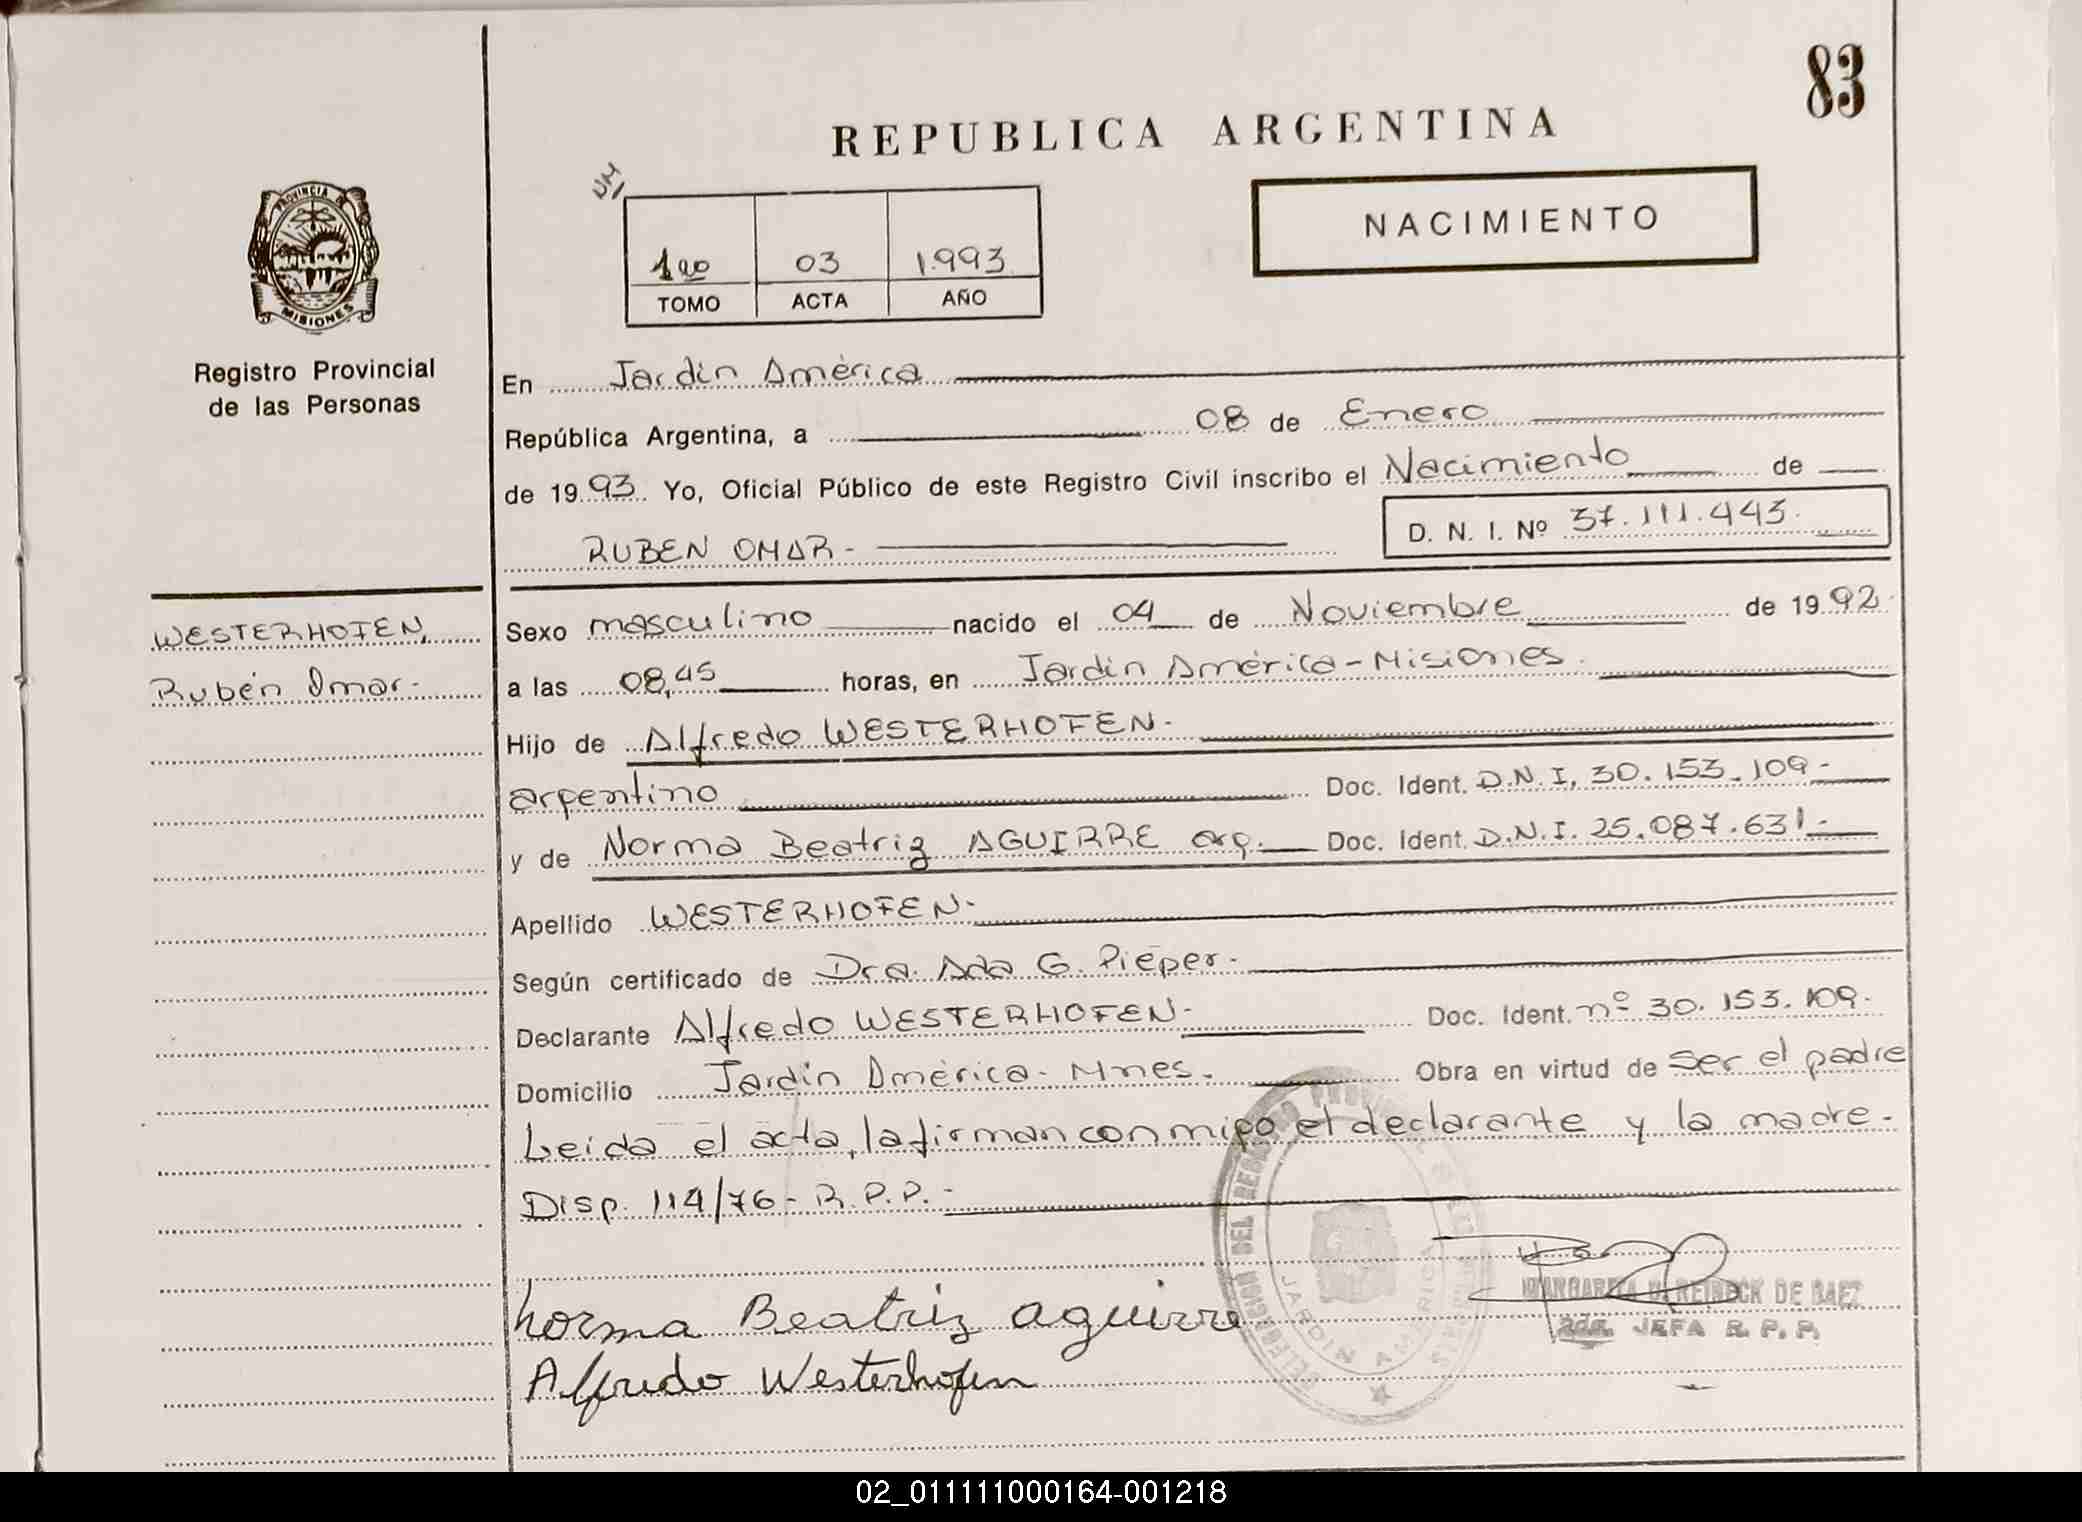 83
REPUBLICA ARGENTINA
NACIMIENTO
1ro 03 1.993
TOMO ACTA AÑO
PROVINCIA DE
MISIONES
Registro Provincial
de las Personas
En Jardín América
República Argentina, a 08 de Enero
de 1993 Yo, Oficial Público de este Registro Civil inscribo el Nacimiento de
RUBEN OMAR.- D. N. I. Nº 37.111.443.
WESTERHOFEN,
Rubén Omar.-
Sexo masculino nacido el 04 de Noviembre de 1992
a las 08,45 horas, en Jardín América-Misiones.
Hijo de Alfredo WESTERHOFEN.-
argentino Doc. Ident. D.N.I, 30.153.109.-
y de Norma Beatriz AGUIRRE arg. Doc. Ident. D.N.I. 25.087.631.-
Apellido WESTERHOFEN.-
Según certificado de Dra. Ada G. Pieper.-
Declarante Alfredo WESTERHOFEN.- Doc. Ident. nº 30.153.109.
Domicilio Jardín América- Mnes. Obra en virtud de ser el padre
Leída el acta, la firman conmigo, el declarante y la madre.-
Disp. 114/76- R.P.P.-
Norma Beatriz aguirre
Alfredo Westerhofen
DEL REGISTRO PROVINCIAL DE LAS
JARDIN AMERICA
MARGARITA REIBECK DE BAEZ
JEFA R. P. P.
02_011111000164-001218